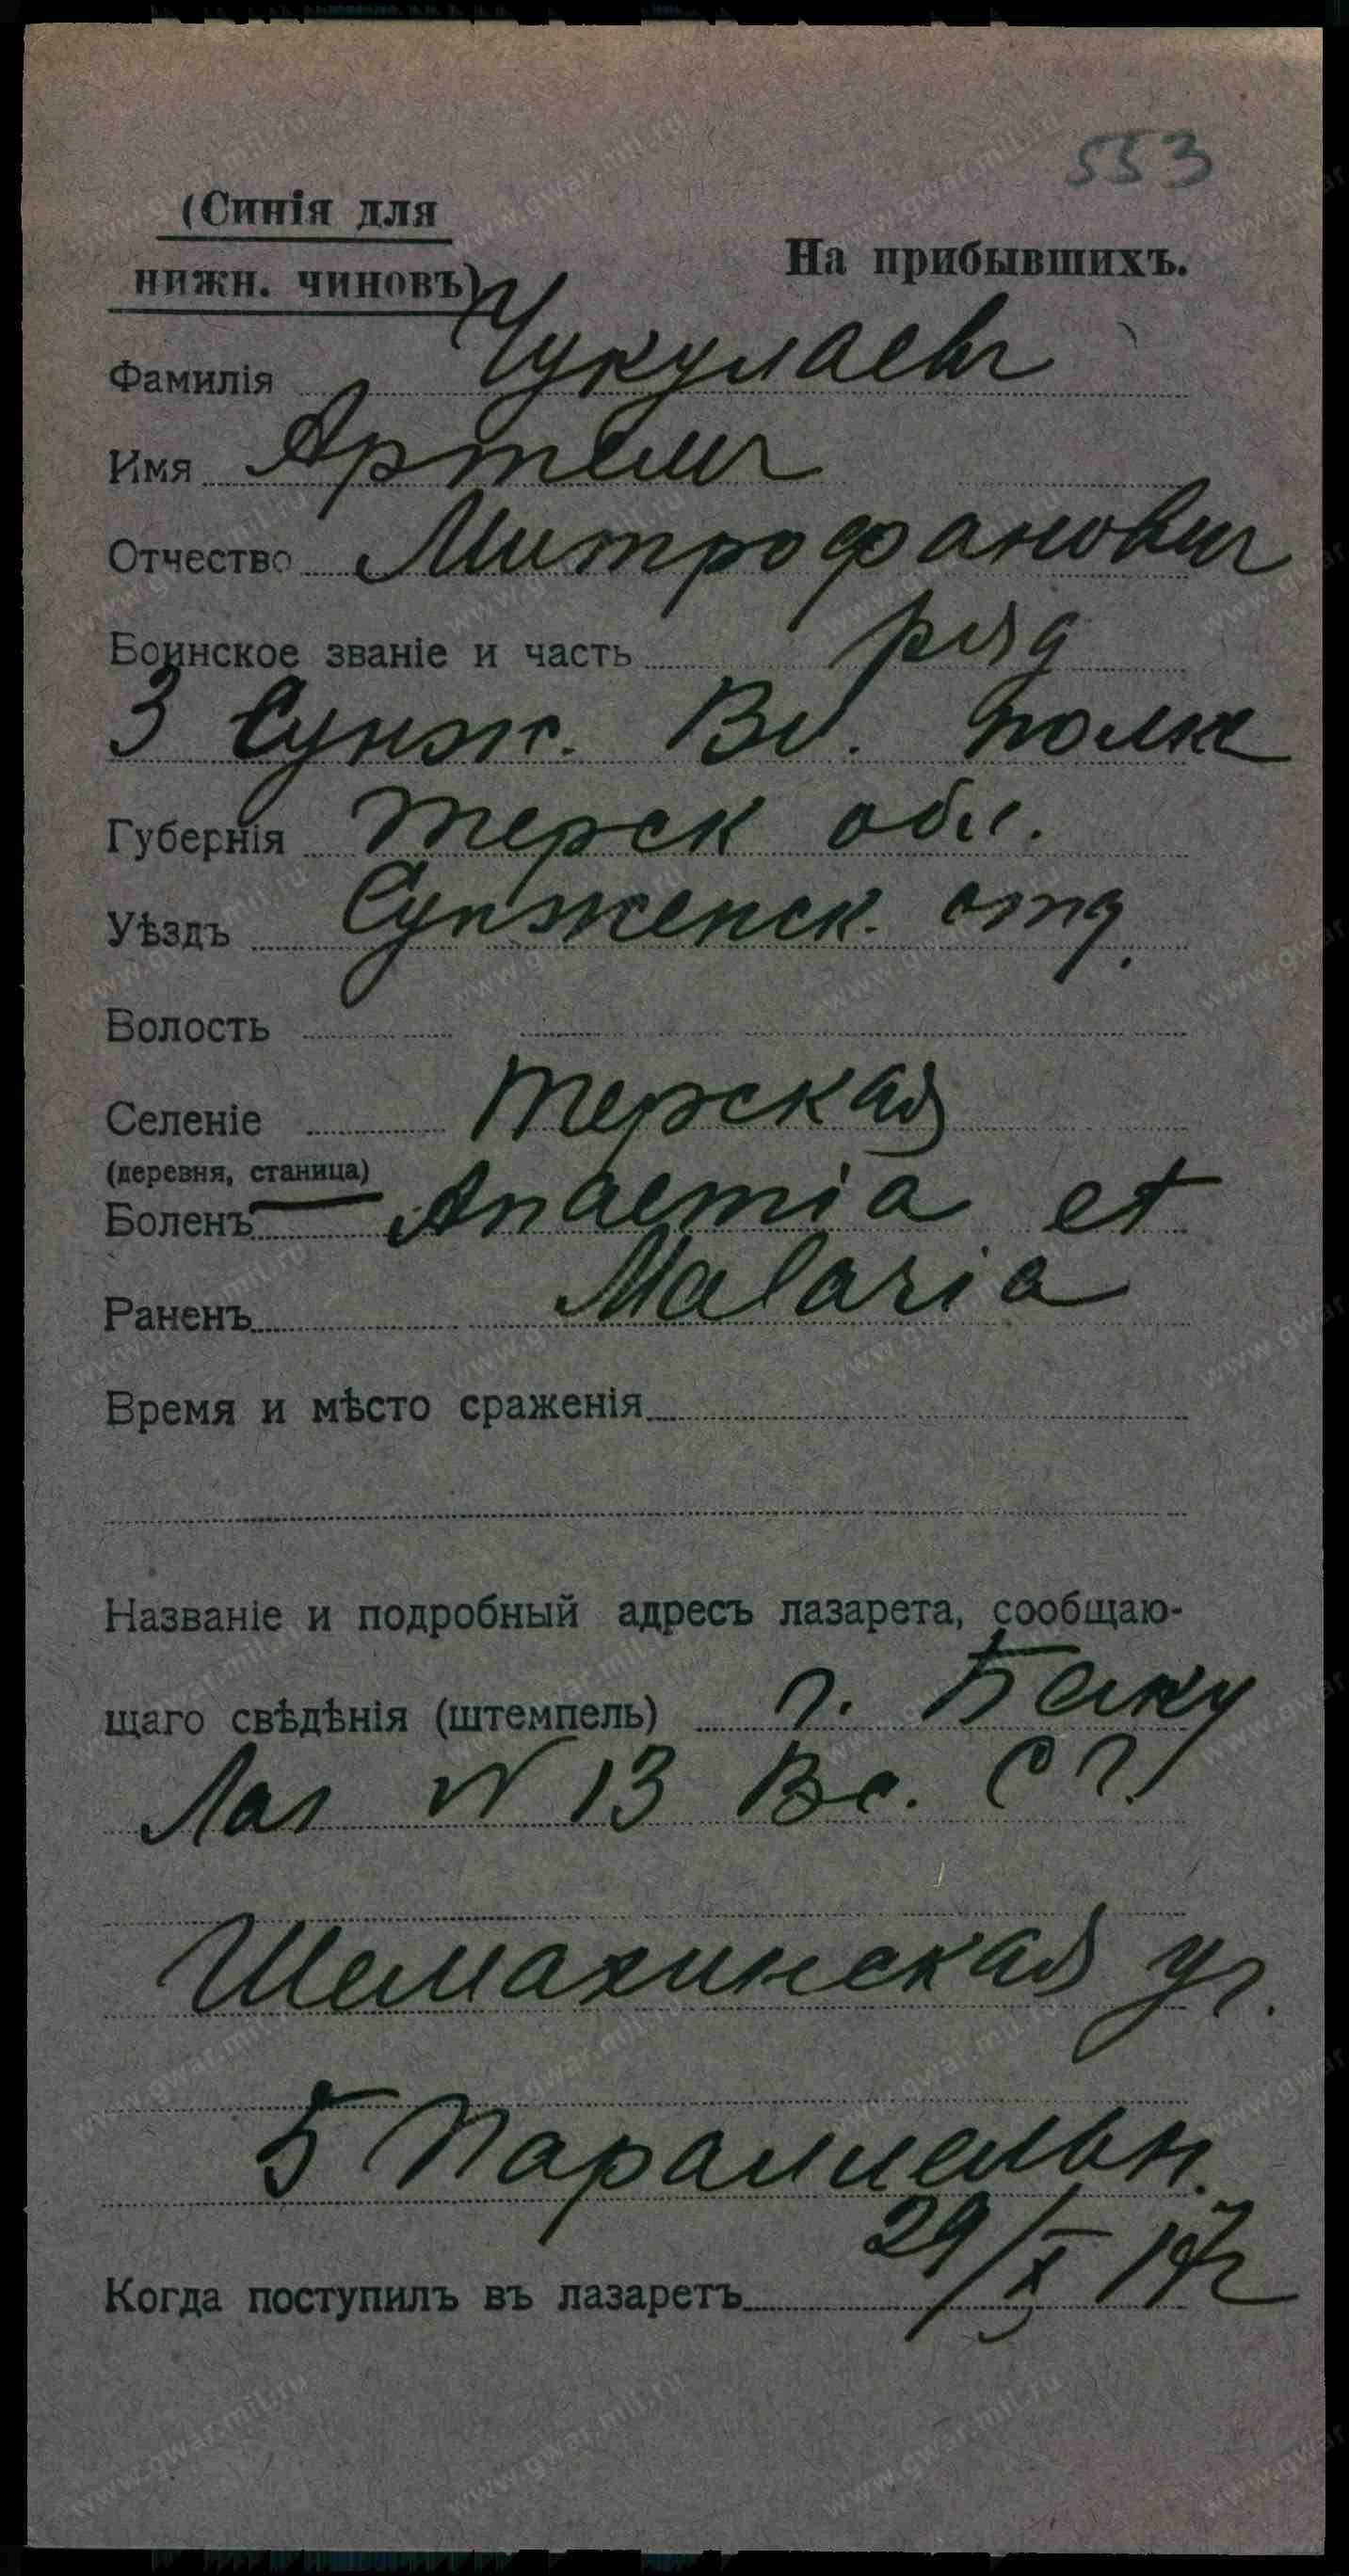 553
(Синія для
нижн. чиновъ)
На прибывшихъ.
Фамилія Чукулаевъ
Имя Артемъ
Отчество Митрофановичъ
Воинское званіе и часть ряд
3 Сунж. Вл. полка
Губернія Терск обл.
Уѣздъ Сунженск. отд.
Волость
Селеніе Терская
(деревня, станица)
Боленъ Anaemia et
Malaria
Раненъ
Время и мѣсто сраженія
Названіе и подробный адресъ лазарета, сообщаю-
щаго свѣдѣнія (штемпель) г. Баку
Лаз № 13 Вс. С Г.
Шемахинская ул.
5 Параллельн.
Когда поступилъ въ лазаретъ 29/X 17 г